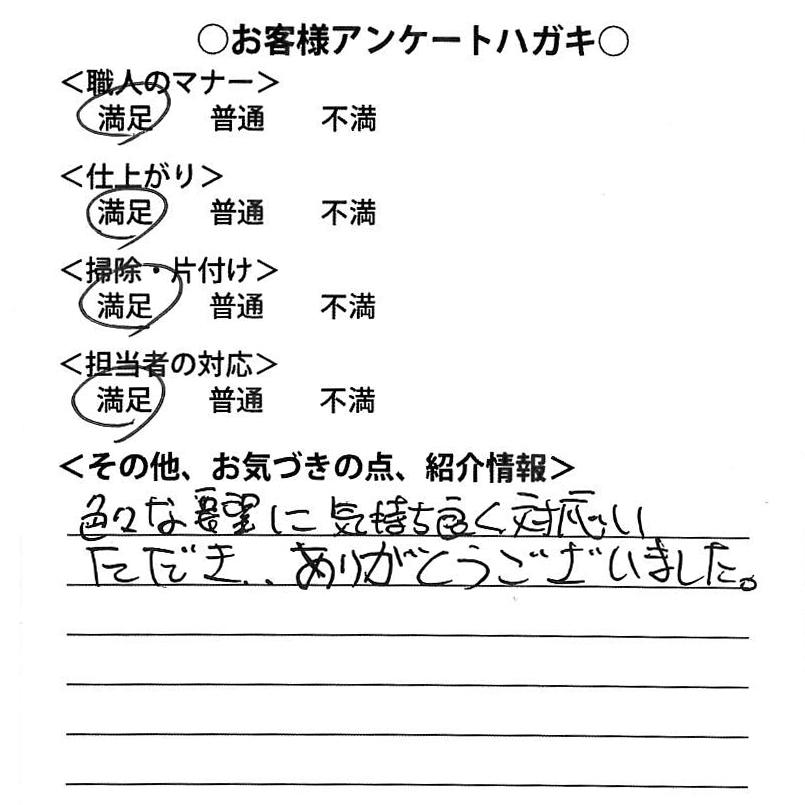 ○お客様アンケートハガキ○
＜職人のマナー＞
満足 普通 不満
＜仕上がり＞
満足 普通 不満
＜掃除・片付け＞
満足 普通 不満
＜担当者の対応＞
満足 普通 不満
＜その他、お気づきの点、紹介情報＞
色々な要望に気持ち良く対応い
ただき、ありがとうございました。